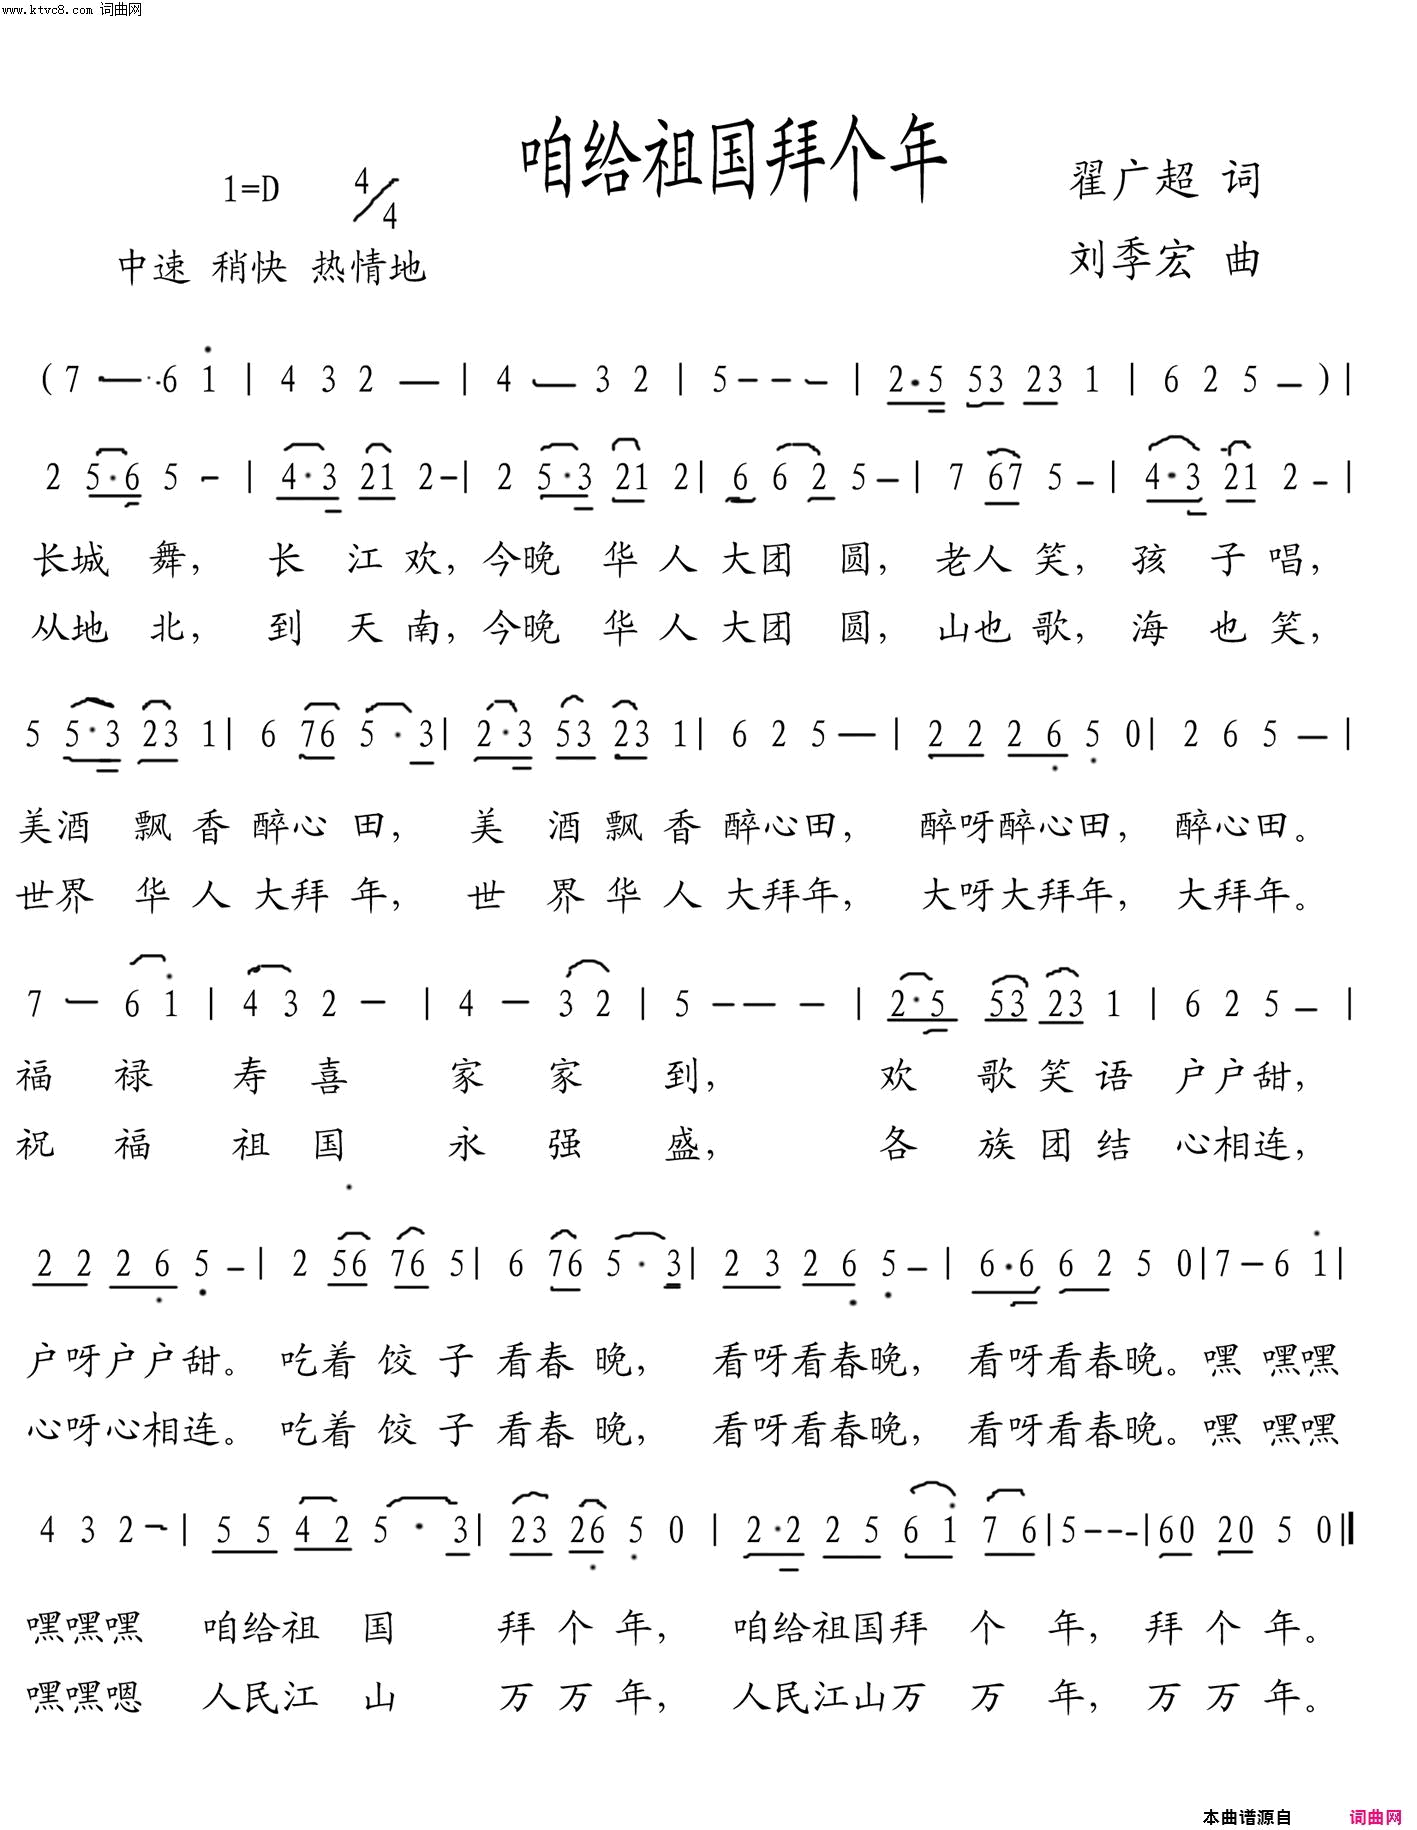 www.ktvc8.com 词曲网
咱给祖国拜个年
1=D 4/4
翟广超 词
中速 稍快 热情地
刘季宏 曲
(7 — ·6 1̇ | 4 3 2 — | 4 — 3 2 | 5 - - - | 2·5 53 23 1 | 6 2 5 - )|
2 5·6 5 - | 4·3 21 2 -| 2 5·3 21 2| 6 6 2 5 -| 7 67 5 -| 4·3 21 2 -|
长城 舞, 长 江 欢, 今晚 华 人 大团 圆, 老人 笑, 孩 子 唱,
从地 北, 到 天 南, 今晚 华 人 大团 圆, 山也 歌, 海 也 笑,
5 5·3 23 1| 6 76 5 · 3| 2·3 53 23 1| 6 2 5 —| 2 2 2 6̣ 5̣ 0| 2 6 5 —|
美酒 飘 香 醉心 田, 美 酒 飘 香 醉心田, 醉呀醉心田, 醉心田。
世界 华 人 大拜 年, 世 界 华 人 大拜年, 大呀大拜年, 大拜年。
7 — 6 1̇ | 4 3 2 — | 4 — 3 2 | 5 - - - | 2·5 53 23 1 | 6 2 5 - |
福 禄 寿 喜 家 家 到, 欢 歌 笑 语 户户甜,
祝 福 祖 国 永 强 盛, 各 族 团 结 心相连,
2 2 2 6̣ 5̣ -| 2 56 76 5| 6 76 5 · 3| 2 3 2 6̣ 5̣ -| 6·6 6 2 5 0|7 - 6 1̇|
户呀户户甜。 吃着 饺 子 看春 晚, 看呀看春晚, 看呀看春晚。嘿 嘿嘿
心呀心相连。 吃着 饺 子 看春 晚, 看呀看春晚, 看呀看春晚。嘿 嘿嘿
4 3 2 -| 5 5 4 2 5 · 3| 23 26̣ 5̣ 0 | 2·2 2 5 6 1̇ 7 6|5 - - -|60 20 5 0‖
嘿嘿嘿 咱给祖 国 拜 个 年, 咱给祖国拜 个 年, 拜 个 年。
嘿嘿嗯 人民江 山 万 万 年, 人民江山万 万 年, 万 万 年。
本曲谱源自 词曲网